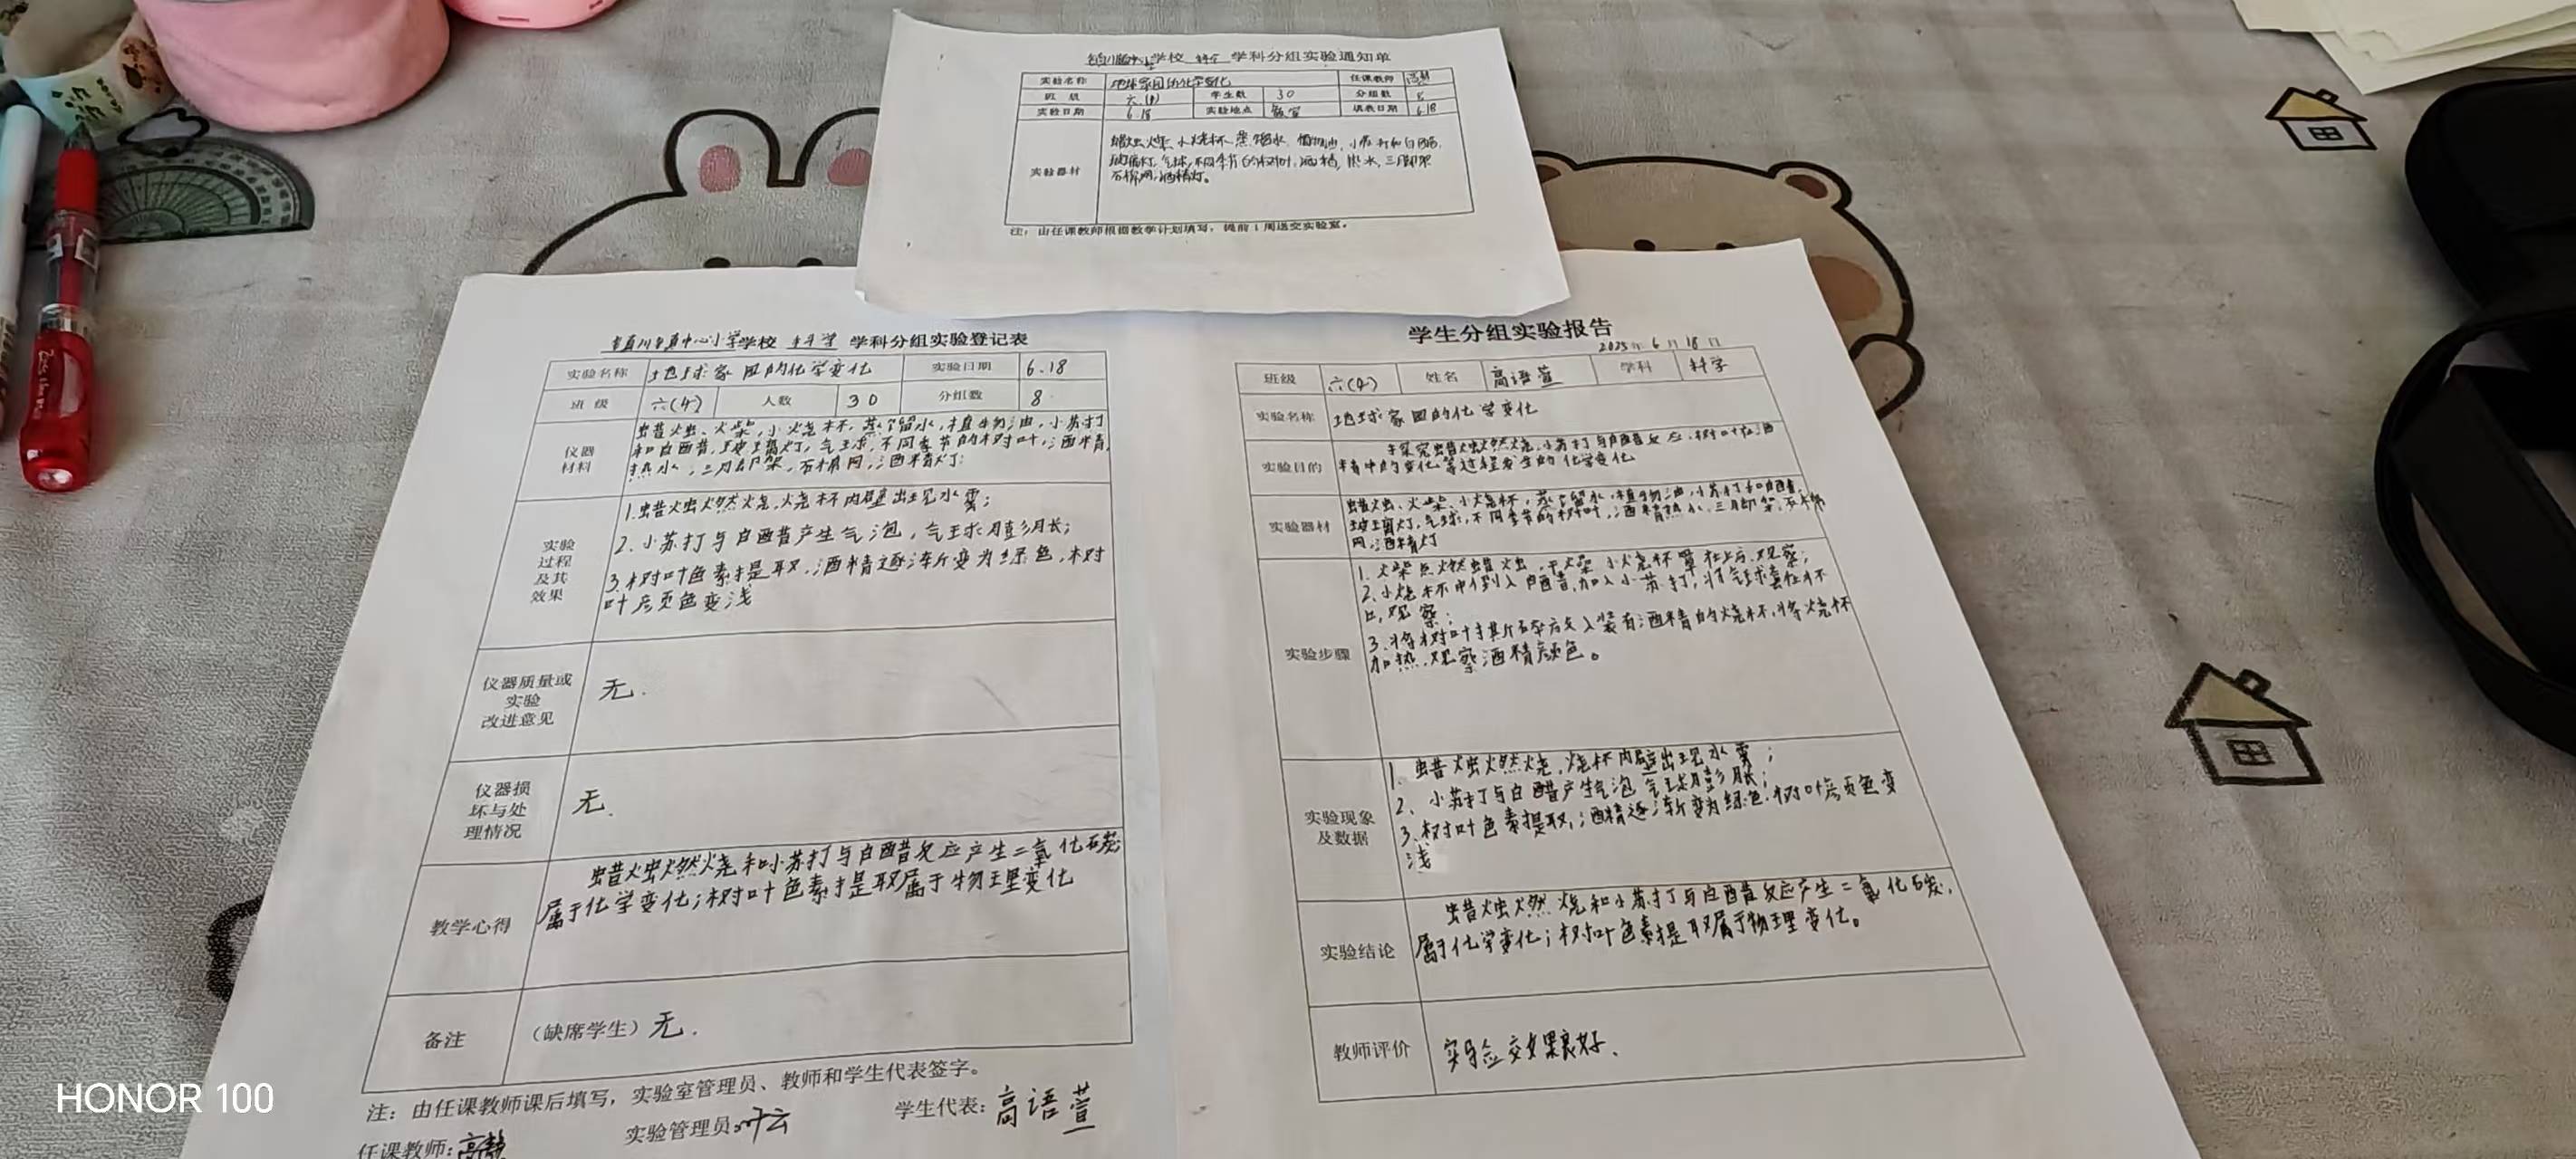 学校 科学 学科分组实验通知单
实验名称 地球家园的化学变化 任课教师
班 级 六(4) 学生数 30 分组数 8
实验日期 6.18 实验地点 教室 填表日期 6.18
实验器材
蜡烛、火柴、小烧杯、蒸馏水、植物油、小苏打和白醋、
玻璃灯、气球、不同季节的树叶、酒精、热水、三脚架
石棉网、酒精灯。
注：由任课教师根据教学计划填写，提前1周送交实验室。
川镇中心小学学校 科学 学科分组实验登记表
实验名称 地球家园的化学变化 实验日期 6.18
班 级 六(4) 人数 30 分组数 8
仪器
材料
蜡烛、火柴、小烧杯、蒸馏水、植物油、小苏打
和白醋、玻璃灯、气球、不同季节的树叶、酒精、
热水、三脚架、石棉网、酒精灯.
实验
过程
及其
效果
1.蜡烛燃烧,烧杯内壁出现水雾;
2.小苏打与白醋产生气泡,气球膨长;
3.树叶色素提取,酒精逐渐变为绿色,树
叶颜色变浅
仪器质量或
实验
改进意见
无.
仪器损
坏与处
理情况
无.
教学心得
蜡烛燃烧和小苏打与白醋反应产生二氧化碳
属于化学变化;树叶色素提取属于物理变化
备注 （缺席学生）无.
注：由任课教师课后填写，实验室管理员、教师和学生代表签字。
任课教师: 实验管理员: 学生代表:高语萱
学生分组实验报告
2025年6月18日
班级 六(4) 姓名 高语萱 学科 科学
实验名称 地球家园的化学变化
实验目的
探究蜡烛燃烧,小苏打与白醋反应,树叶在酒
精中的变化等过程发生的化学变化
实验器材
蜡烛、火柴、小烧杯、蒸馏水、植物油、小苏打和白醋、
玻璃灯、气球、不同季节的树叶、酒精热水、三脚架、石棉
网、酒精灯
实验步骤
1.火柴点燃蜡烛,干燥小烧杯罩在上方,观察;
2.小烧杯中倒入白醋,加入小苏打,将气球套在杯
上,观察;
3.将树叶撕碎放入装有酒精的烧杯,将烧杯
加热,观察酒精颜色。
实验现象
及数据
1.蜡烛燃烧,烧杯内壁出现水雾;
2.小苏打与白醋产生气泡 气球膨胀;
3.树叶色素提取,酒精逐渐变为绿色.树叶颜色变
浅
实验结论
蜡烛燃烧和小苏打与白醋反应产生二氧化碳,
属于化学变化;树叶色素提取属于物理变化。
教师评价
实验效果良好.
HONOR 100